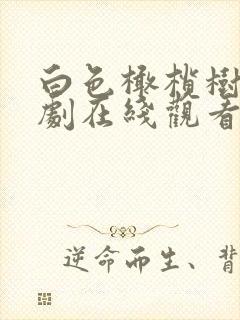 白色橄欖樹
劇在綫觀看
逆命而生、背